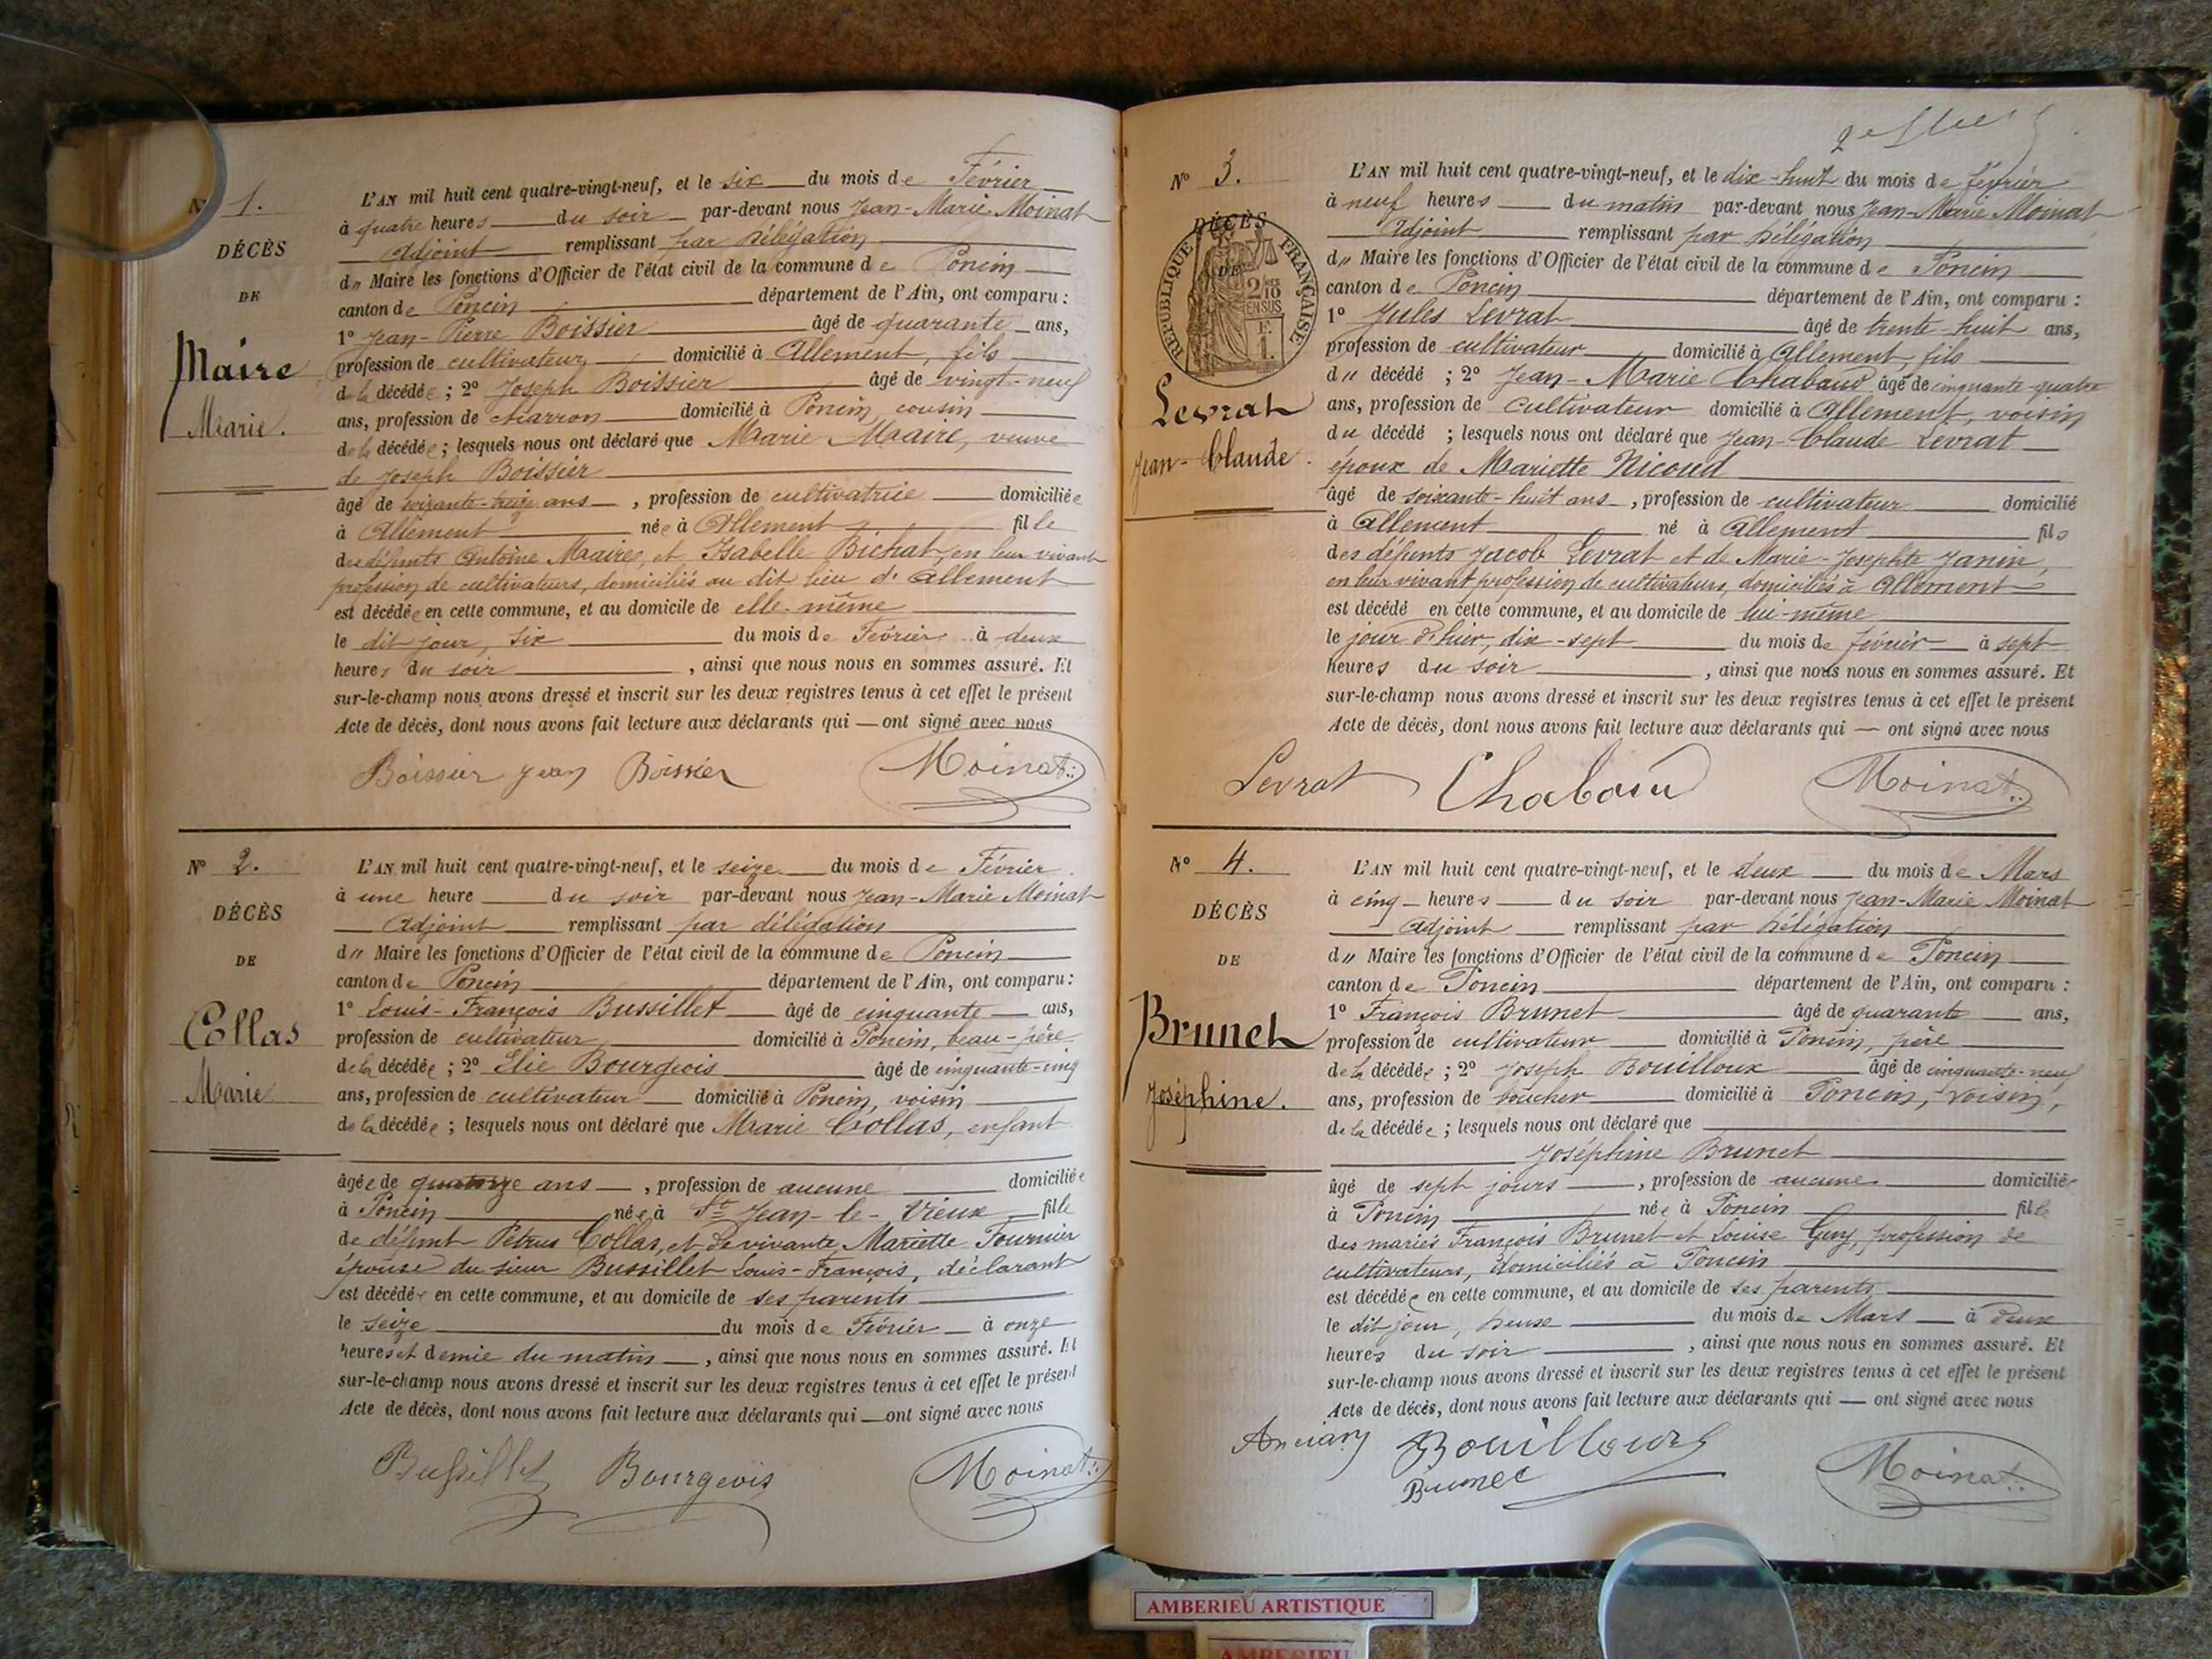 N° 1.
DÉCÈS
DE
Maire
Marie.
L'AN mil huit cent quatre-vingt-neuf, et le six du mois de Février
à quatre heures du soir par-devant nous Jean-Marie Moinat
Adjoint remplissant par délégation
d„ Maire les fonctions d'Officier de l'état civil de la commune de Poncin
canton de Poncin département de l'Ain, ont comparu :
1° Jean-Pierre Boissier âgé de quarante ans,
profession de cultivateur domicilié à Allement, fils
de la décédée ; 2° Joseph Boissier âgé de vingt-neuf
ans, profession de charron domicilié à Poncin, cousin
de la décédée ; lesquels nous ont déclaré que Marie Maire, veuve
de Joseph Boissier
âgé de soixante-treize ans, profession de cultivatrice domiciliée
à Allement née à Allement fille
des défunts Antoine Maire, et Isabelle Bichat, en leur vivant
profession de cultivateurs, domiciliés au dit lieu d'Allement
est décédée en cette commune, et au domicile de elle-même
le dit jour, six du mois de Février à deux
heures du soir, ainsi que nous nous en sommes assuré. Et
sur-le-champ nous avons dressé et inscrit sur les deux registres tenus à cet effet le présent
Acte de décès, dont nous avons fait lecture aux déclarants qui — ont signé avec nous
Boissier Jean Boissier Moinat
N° 2.
DÉCÈS
DE
Collas
Marie
L'AN mil huit cent quatre-vingt-neuf, et le seize du mois de Février
à une heure du soir par-devant nous Jean-Marie Moinat
Adjoint remplissant par délégation
d„ Maire les fonctions d'Officier de l'état civil de la commune de Poncin
canton de Poncin département de l'Ain, ont comparu :
1° Louis-François Bussillet âgé de cinquante ans,
profession de cultivateur domicilié à Poncin, beau-père
de la décédée ; 2° Elie Bourgeois âgé de cinquante-cinq
ans, profession de cultivateur domicilié à Poncin, voisin
de la décédée ; lesquels nous ont déclaré que Marie Collas, enfant
âgée de quatorze ans, profession de aucune domiciliée
à Poncin née à St Jean-le-Vieux fille
de défunt Pétrus Collas, et de vivante Mariette Fournier
épouse du sieur Bussillet Louis-François, déclarant
est décédée en cette commune, et au domicile de ses parents
le seize du mois de Février à onze
heures et demie du matin, ainsi que nous nous en sommes assuré. Et
sur-le-champ nous avons dressé et inscrit sur les deux registres tenus à cet effet le présent
Acte de décès, dont nous avons fait lecture aux déclarants qui — ont signé avec nous
Bussillet Bourgeois Moinat
N° 3.
DÉCÈS
DE
RÉPUBLIQUE FRANÇAISE
2/10 EN SUS
F. 1.
Levrat
Jean-Claude.
L'AN mil huit cent quatre-vingt-neuf, et le dix-huit du mois de février
à neuf heures du matin par-devant nous Jean-Marie Moinat
Adjoint remplissant par délégation
d„ Maire les fonctions d'Officier de l'état civil de la commune de Poncin
canton de Poncin département de l'Ain, ont comparu :
1° Jules Levrat âgé de trente-huit ans,
profession de cultivateur domicilié à Allement, fils
du décédé ; 2° Jean-Marie Chabaud âgé de cinquante-quatre
ans, profession de cultivateur domicilié à Allement, voisin
du décédé ; lesquels nous ont déclaré que Jean-Claude Levrat
époux de Mariette Nicoud
âgé de soixante-huit ans, profession de cultivateur domicilié
à Allement né à Allement fils
des défunts Jacob Levrat et de Marie-Josephte Janin,
en leur vivant profession de cultivateurs, domiciliés à Allement
est décédé en cette commune, et au domicile de lui-même
le jour d'hier, dix-sept du mois de février à sept
heures du soir, ainsi que nous nous en sommes assuré. Et
sur-le-champ nous avons dressé et inscrit sur les deux registres tenus à cet effet le présent
Acte de décès, dont nous avons fait lecture aux déclarants qui — ont signé avec nous
Levrat Chabaud Moinat
N° 4.
DÉCÈS
DE
Brunet
Joséphine.
L'AN mil huit cent quatre-vingt-neuf, et le deux du mois de Mars
à cinq heures du soir par-devant nous Jean-Marie Moinat
Adjoint remplissant par délégation
d„ Maire les fonctions d'Officier de l'état civil de la commune de Poncin
canton de Poncin département de l'Ain, ont comparu :
1° François Brunet âgé de quarante ans,
profession de cultivateur domicilié à Poncin, père
de la décédée ; 2° Joseph Bouilloux âgé de cinquante-neuf
ans, profession de boucher domicilié à Poncin, voisin,
de la décédée ; lesquels nous ont déclaré que
Joséphine Brunet
âgé de sept jours, profession de aucune domiciliée
à Poncin née à Poncin fille
des mariés François Brunet et Louise Guy, profession de
cultivateurs, domiciliés à Poncin
est décédée en cette commune, et au domicile de ses parents
le dit jour, deux du mois de Mars à deux
heures du soir, ainsi que nous nous en sommes assuré. Et
sur-le-champ nous avons dressé et inscrit sur les deux registres tenus à cet effet le présent
Acte de décès, dont nous avons fait lecture aux déclarants qui — ont signé avec nous
Bouilloux Moinat
Brunet
AMBERIEU ARTISTIQUE
AMBERIEU